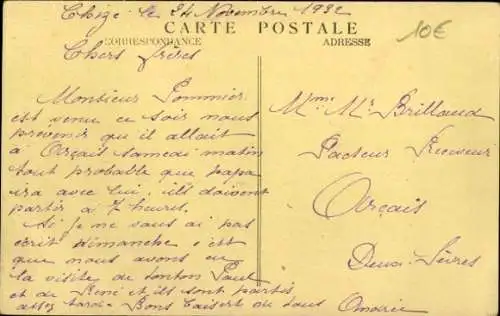 Chizé le 24 Novembre 1932
10€
CARTE POSTALE
CORRESPONDANCE
ADRESSE
Chers frères
Monsieur Pommier
est venue ce soir nous
prévenir qu'il allait
à Orçais samedi matin
tout probable que papa
ira avec lui. ills doivent
partir à 7 heures.
Si je ne vous ai pas
écrit dimanche c'est
que nous avons eu
la visite de tonton Paul
et de René et ils sont partis
assez tard. Bons baisers de tous
Mme Mr Brilland
Facteur Receveur
Orçais
Deux-Sèvres